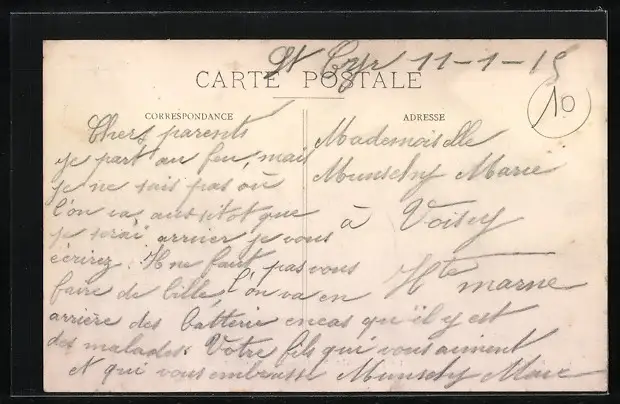 St Cyr 11-1-15
CARTE POSTALE
10
CORRESPONDANCE
ADRESSE
Chers parents
je part au feu, mais
je ne sais pas où
l'on va, aussitot que
je serai arriver je vous
écrirez. Il ne faut pas vous
faire de bille, l'on va en
arrière des batterie encas qu'il y est
des malades. Votre fils qui vous aiment
et qui vous embrasse Munschy Marc
Mademoiselle
Munschy Marie
à Voisey
Hte marne